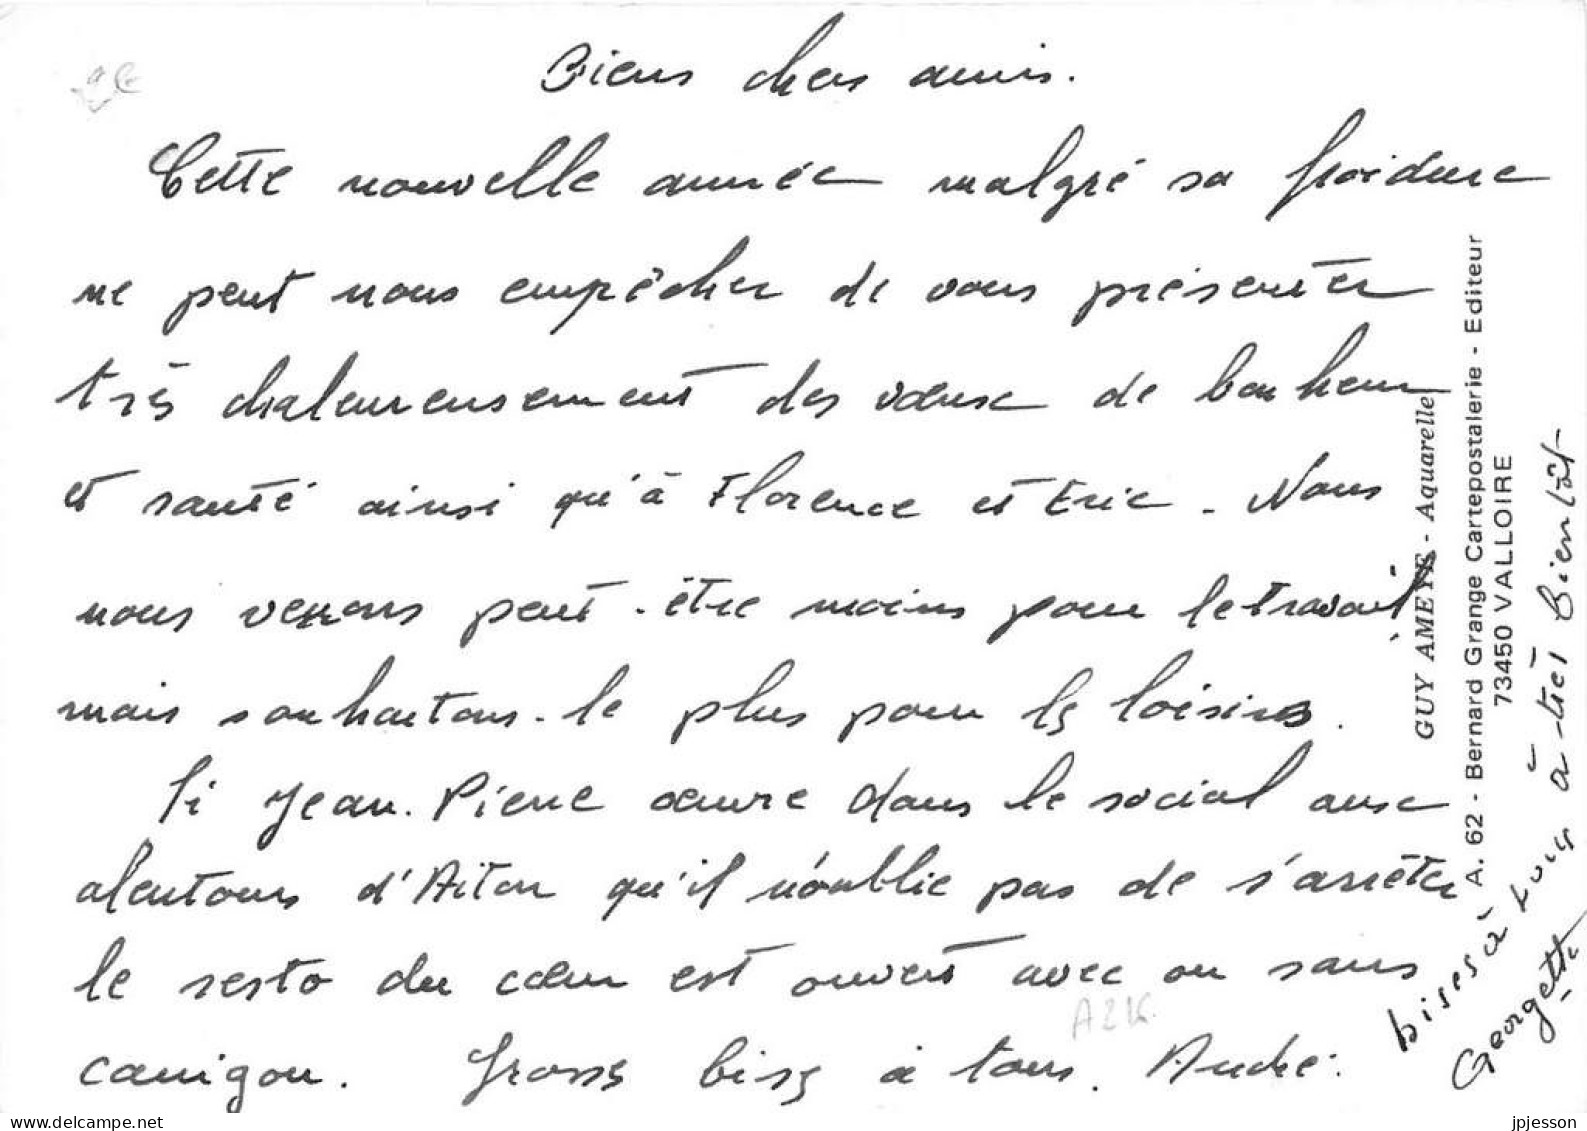 Biens chers amis.
Cette nouvelle année malgré sa froidure
ne peut nous empêcher de vous présenter
très chaleureusement des vœux de bonheur
et santé ainsi qu'à Florence et Eric. Nous
nous verrons peut-être moins pour le travail,
mais souhaitons-le plus pour les loisirs.
Si Jean-Pierre œuvre dans le social aux
alentours d'Aiton qu'il n'oublie pas de s'arrêter
le resto du cœur est ouvert avec ou sans
canigou. Grosses bises à tous. André.
bises à tous à très Bientôt
Georgette
GUY AMEYE - Aquarelle
A. 62 - Bernard Grange Cartepostalerie - Editeur
73450 VALLOIRE
A2K
www.delcampe.net
jpjesson